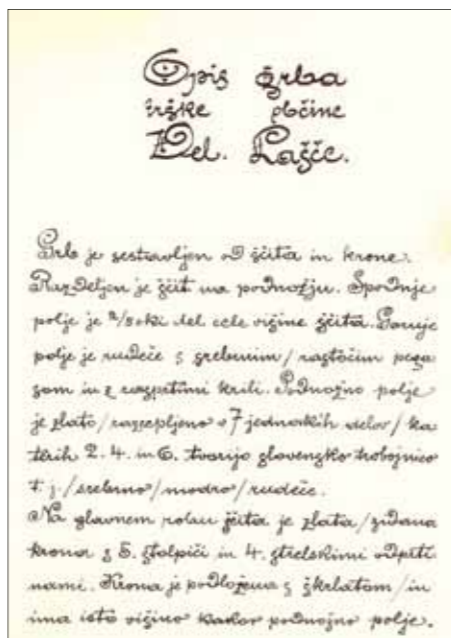 Opis grba
trške občine
Vel. Lašče.
Grb je sestavljen od ščita in krone.
Razdeljen je ščit na podnožju. Spodnje
polje je 2/5 ski del cele višine ščita. Gornje
polje je rudeče s srebrnim/rastočim pega
zom in z razprtimi krili. Podnožno polje
je zlato/razcepljeno v 7 jednakih delov/ka
terih 2. 4. in 6. tvorijo slovensko trobojnico
t. j./srebrno/modro/rudeče.
Na glavnem robu ščita je zlata/zidana
krona s 5. stolpiči in 4. strelskimi odprti
nami. Krona je podložena s škrlatom/in
ima isto višino kakor podnožno polje.